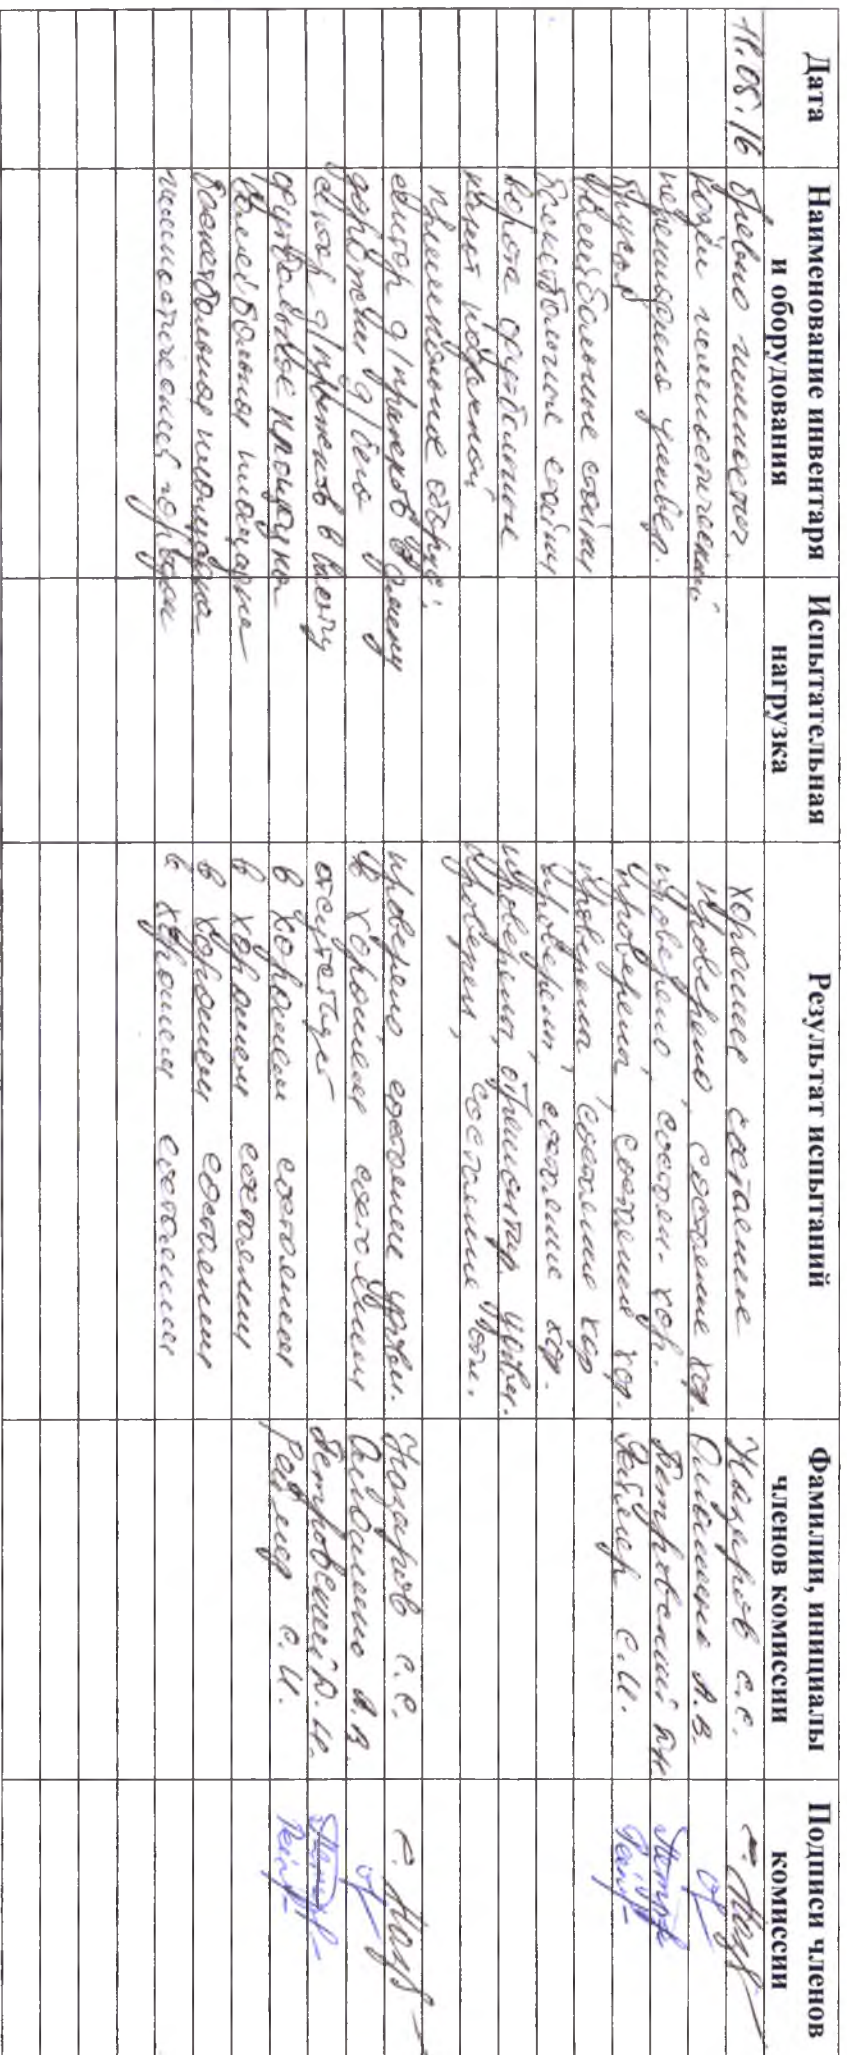 Дата Наименование инвентаря и оборудования Испытательная нагрузка Результат испытаний Фамилии, инициалы членов комиссии Подписи членов комиссии
18.08.16 Бревно гимнастич. хорошее состояние Назаров С.С.
козёл гимнастический проверено, состояние хор. А.В.
перекладина универ. проверено, состоян. хор. Петровский
Брусья проверены, состояние хор. С.И.
Волейбольные стойки проверены, состояние хор
Баскетбольные стойки проверены, состояние хор.
Ворота футбольные проверены,
канат проверен, состояние
гимнастическ.
сектор д/прыжков в длину проверено, состояние удовл. Назаров С.С.
дорожки д/бега в хорошем состоянии А.В.
сектор д/прыжков в высоту отсутствует Петровский
футбольная площадка в хорошем состоянии С.И.
Волейбольная площадка в хорошем состоянии
Баскетбольная площадка в хорошем состоянии
гимнастический городок в хорошем состоянии